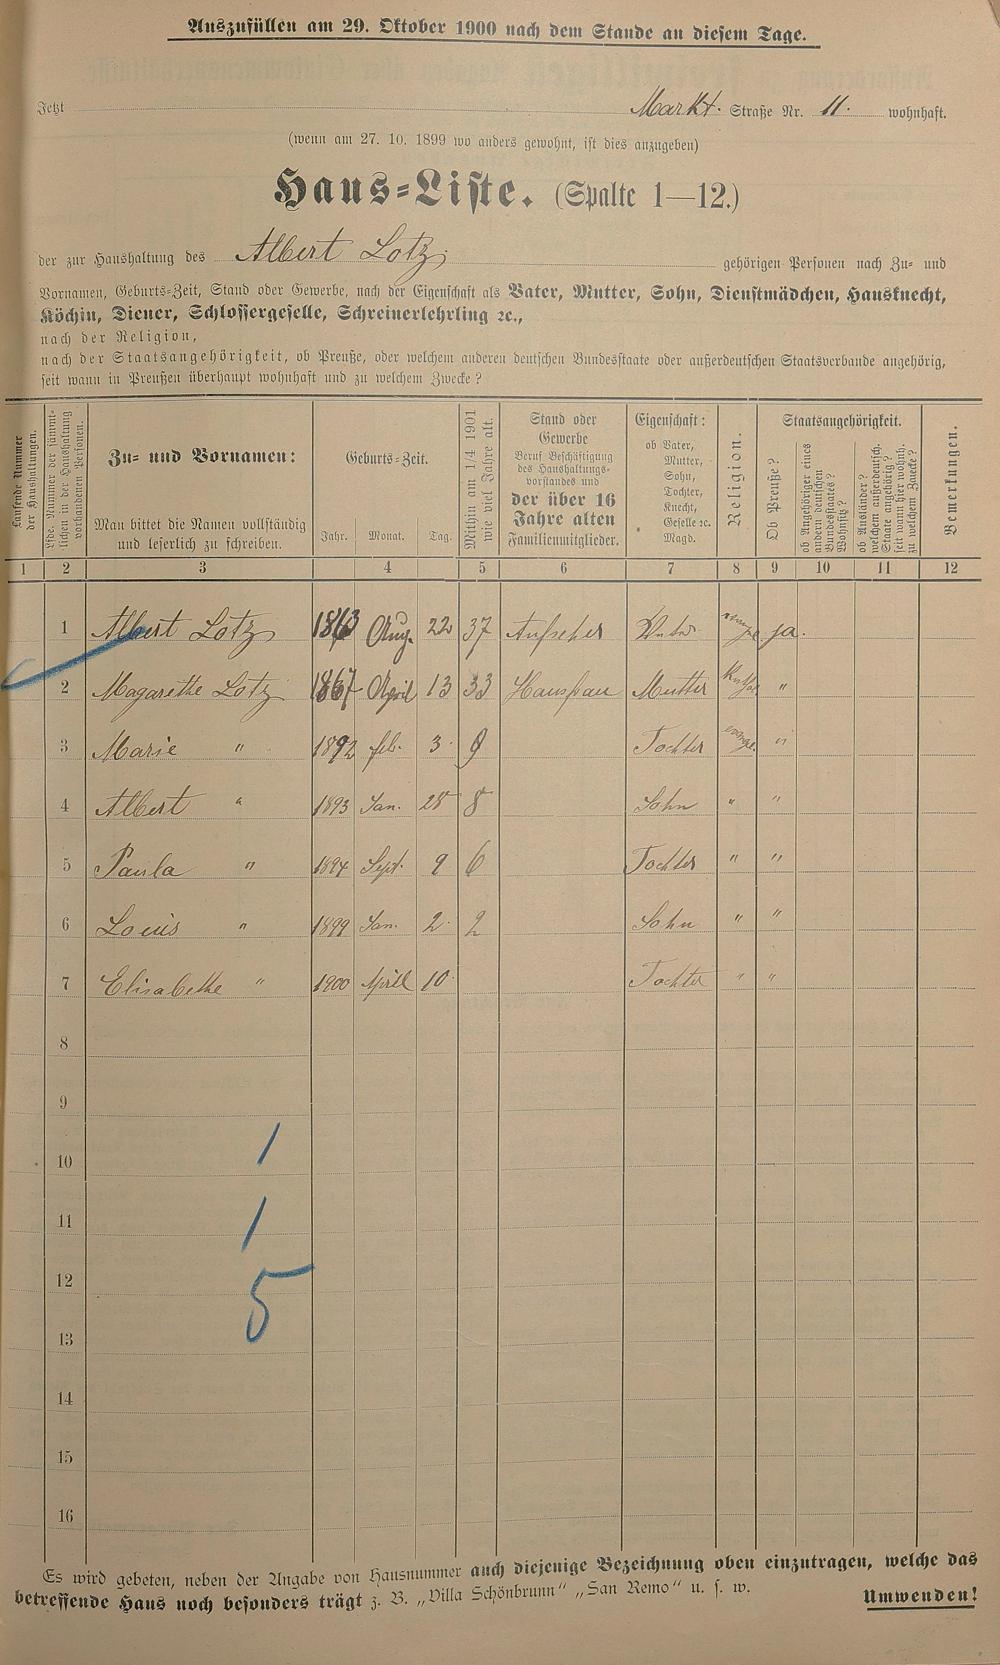 Auszufüllen am 29. Oktober 1900 nach dem Stande an diesem Tage.
Jetzt Markt. Straße Nr. 11. wohnhaft.
(wenn am 27. 10. 1899 wo anders gewohnt, ist dies anzugeben)
Haus=Liste. (Spalte 1—12.)
der zur Haushaltung des Albert Lotz gehörigen Personen nach Zu= und
Vornamen, Geburts=Zeit, Stand oder Gewerbe, nach der Eigenschaft als Vater, Mutter, Sohn, Dienstmädchen, Hausknecht,
Köchin, Diener, Schlossergeselle, Schreinerlehrling ꝛc.,
nach der Religion,
nach der Staatsangehörigkeit, ob Preuße, oder welchem anderen deutschen Bundesstaate oder außerdeutschen Staatsverbande angehörig,
seit wann in Preußen überhaupt wohnhaft und zu welchem Zwecke?
Laufende Nummer
der Haushaltungen.
Lfde. Nummer der sämmt=
lichen in der Haushaltung
vorhandenen Personen.
Zu= und Vornamen:
Man bittet die Namen vollständig
und leserlich zu schreiben.
Geburts=Zeit.
Jahr. Monat. Tag.
Mithin am 1/4 1901
wie viel Jahre alt.
Stand oder
Gewerbe
Beruf Beschäftigung
des Haushaltungs=
vorstandes und
der über 16
Jahre alten
Familienmitglieder.
Eigenschaft:
ob Vater,
Mutter,
Sohn,
Tochter,
Knecht,
Geselle ꝛc.
Magd.
Religion.
Staatsangehörigkeit.
Ob Preuße?
ob Angehöriger eines
andern deutschen
Bundesstaates?
Wohnsitz?
ob Ausländer?
welchem außerdeutsch.
Staate angehörig?
seit wann hier wohnh.
zu welchem Zwecke?
Bemerkungen.
1 2 3 4 5 6 7 8 9 10 11 12
1 Albert Lotz 1863 Aug. 22 37 Aufseher Vater ja.
2 Magarethe Lotz 1867 April 13 33 Hausfrau Mutter "
3 Marie " 1892 feb. 3. 9 Tochter evange. "
4 Albert " 1893 Jan. 28 8 Sohn " "
5 Paula " 1894 Sept. 9 6 Tochter " "
6 Louis " 1899 Jan. 2. 2 Sohn " "
7 Elisabethe " 1900 April 10 Tochter " "
8
9
10
1
11
1
12
5
13
14
15
16
Es wird gebeten, neben der Angabe von Hausnummer auch diejenige Bezeichnung oben einzutragen, welche das
betreffende Haus noch besonders trägt z. B. „Villa Schönbrunn“ „San Remo“ u. s. w. Umwenden!